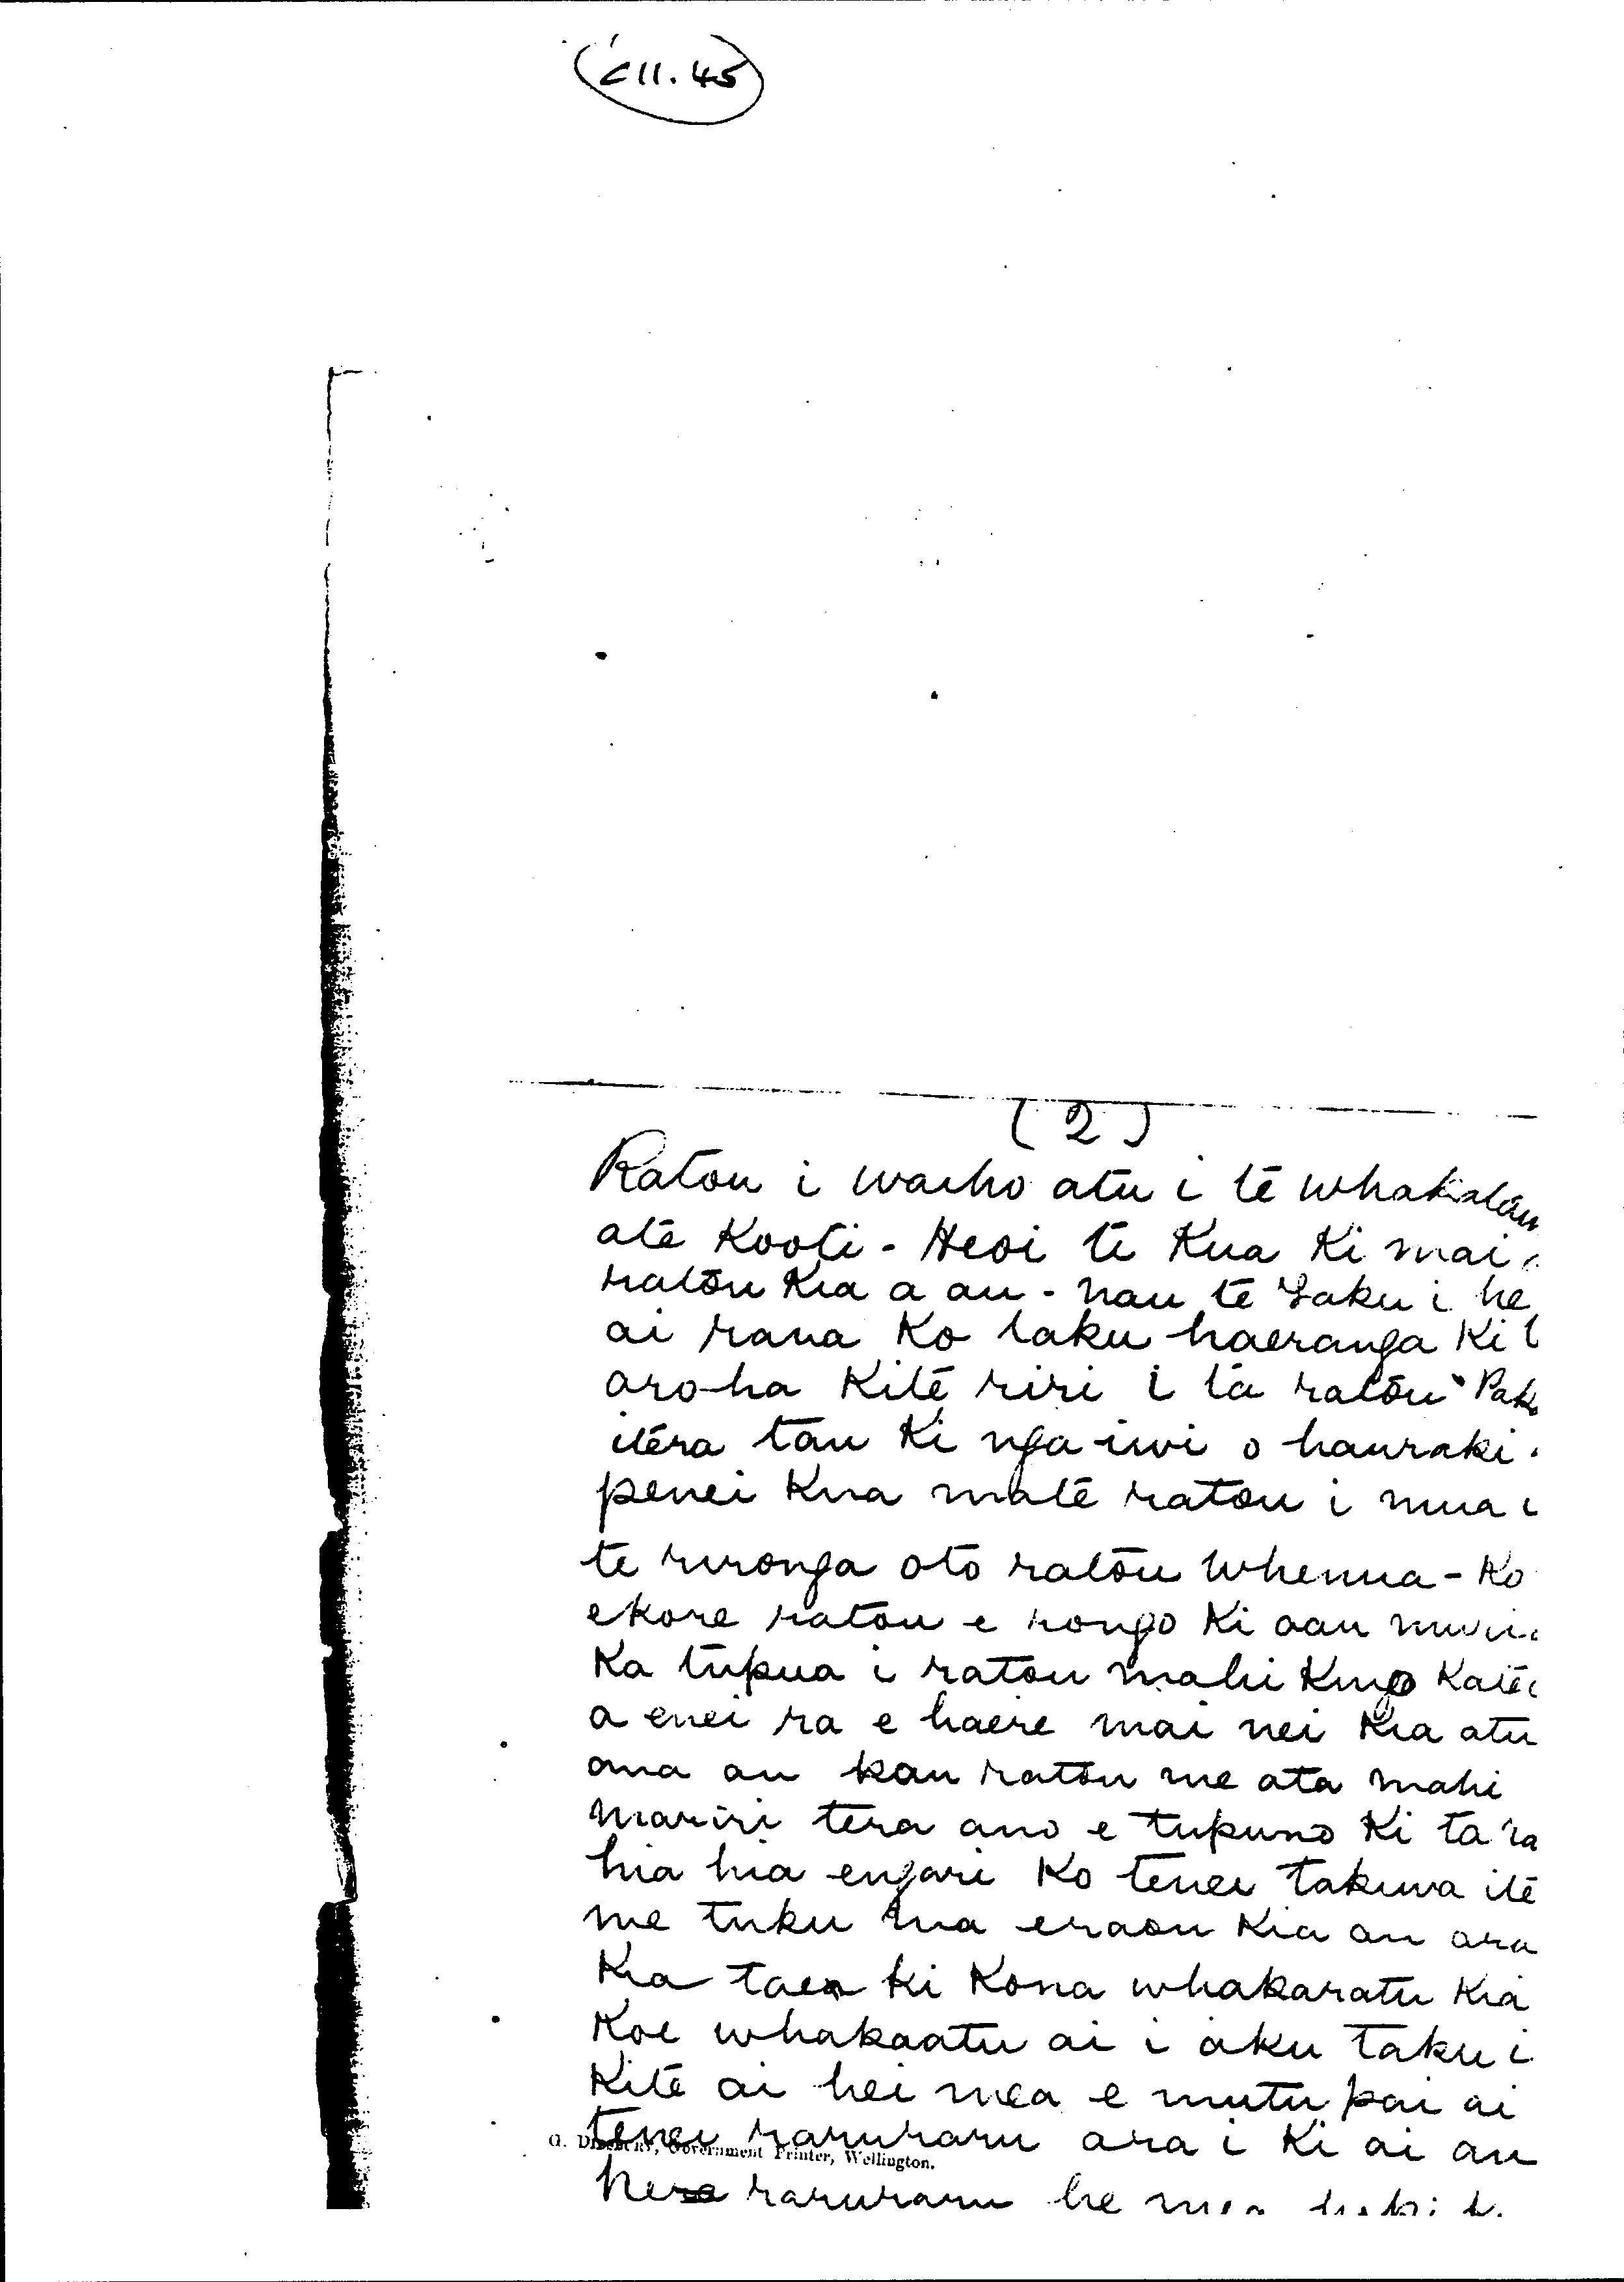 C11.45
(2)
Ratou i waiho atu i te whakatau
ate Kooti - Heoi te Kua Ki mai
ratou Kia a au - nau te Taku i he
ai rana Ko taku haeranga Ki t
aroha Kite riri i ta ratou Pak
itera tau Ki nga iwi o hauraki.
penei Kua mate ratou i mua i
te rironga oto ratou Whenua - Ko
ekore ratou e rongo Ki aau
Ka tupua i ratou mahi
a enei ra e haere mai nei Kia atu
ana au kau ratou me ata mahi
mariri tera ano e tupuno Ki ta ra
hia hia engari Ko tenei takiwa ite
me tuku Kia au ara
Kia taea ki Kona whakaratu Kia
Koe whakaatu ai i aku Taku i
Kite ai hei mea e mutu pai ai
tenei raruraru ara i Ki ai au
G. Didsbury, Government Printer, Wellington.
raruraru he